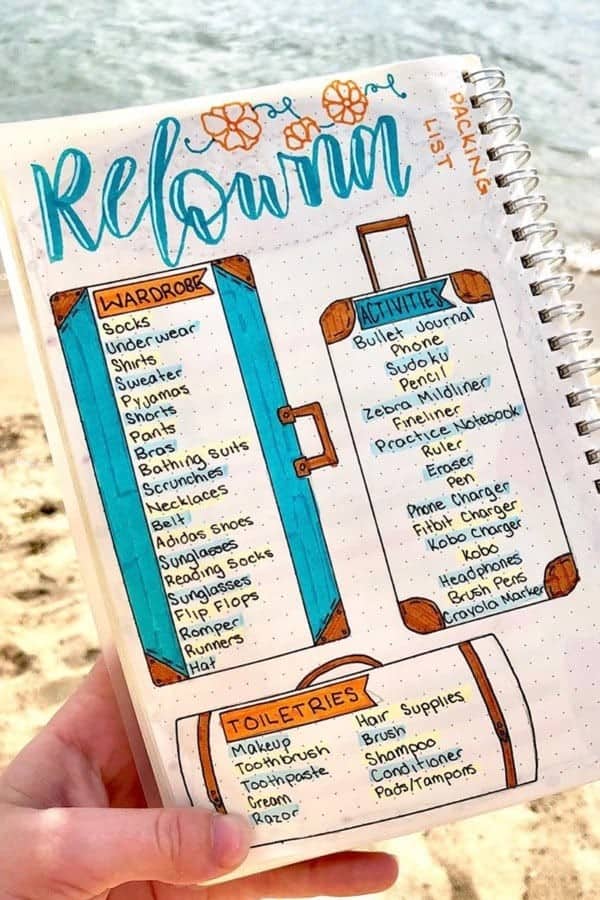 Kelowna
PACKING
LIST
WARDROBE
Socks
Underwear
Shirts
Sweater
Pyjamas
Shorts
Pants
Bras
Bathing Suits
Scrunchies
Necklaces
Belt
Adidas Shoes
Sunglasses
Reading Socks
Sunglasses
Flip Flops
Romper
Runners
Hat
ACTIVITIES
Bullet Journal
Phone
Sudoku
Pencil
Zebra Mildliner
Fineliner
Practice Notebook
Ruler
Eraser
Pen
Phone Charger
Fitbit Charger
Kobo Charger
Kobo
Headphones
Brush Pens
Crayola Marker
TOILETRIES
Makeup
Toothbrush
Toothpaste
Cream
Razor
Hair Supplies
Brush
Shampoo
Conditioner
Pads/Tampons